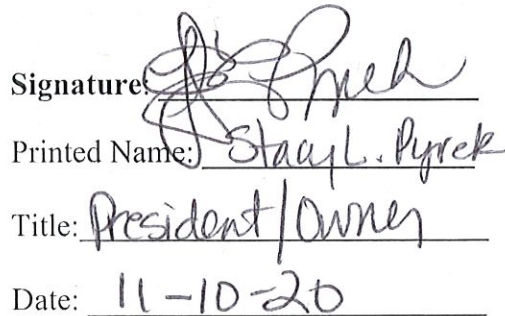 Signature:
Printed Name: Stacy L. Pyrek
Title: President/Owner
Date: 11-10-20